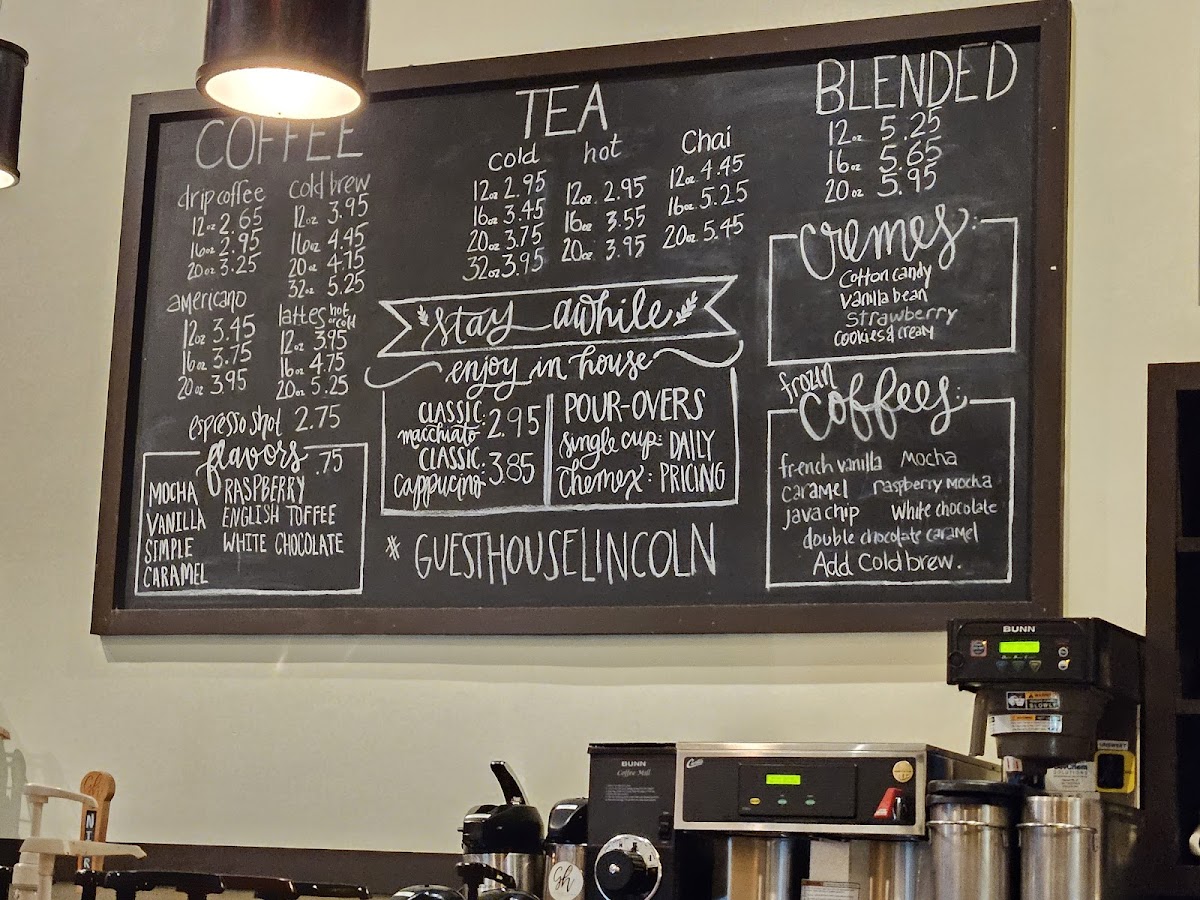 COFFEE
drip coffee
12oz 2.65
16oz 2.95
20oz 3.25
cold brew
12oz 3.95
16oz 4.45
20oz 4.75
32oz 5.25
americano
12oz 3.45
16oz 3.75
20oz 3.95
lattes hot or cold
12oz 3.95
16oz 4.75
20oz 5.25
espresso shot 2.75
flavors .75
MOCHA
VANILLA
SIMPLE
CARAMEL
RASPBERRY
ENGLISH TOFFEE
WHITE CHOCOLATE
TEA
cold
12oz 2.95
16oz 3.45
20oz 3.75
32oz 3.95
hot
12oz 2.95
16oz 3.55
20oz 3.95
Chai
12oz 4.45
16oz 5.25
20oz 5.45
stay awhile
enjoy in house
CLASSIC
macchiato: 2.95
CLASSIC
cappucino: 3.85
POUR-OVERS
single cup: DAILY
Chemex: PRICING
# GUESTHOUSELINCOLN
BLENDED
12oz 5.25
16oz 5.65
20oz 5.95
cremes:
Cotton candy
Vanilla bean
Strawberry
cookies & cream
frozen
coffees:
french vanilla
Mocha
caramel
raspberry mocha
java chip
White chocolate
double chocolate caramel
Add Cold brew.
BUNN
BUNN
Coffee Mill
Curtis
gh